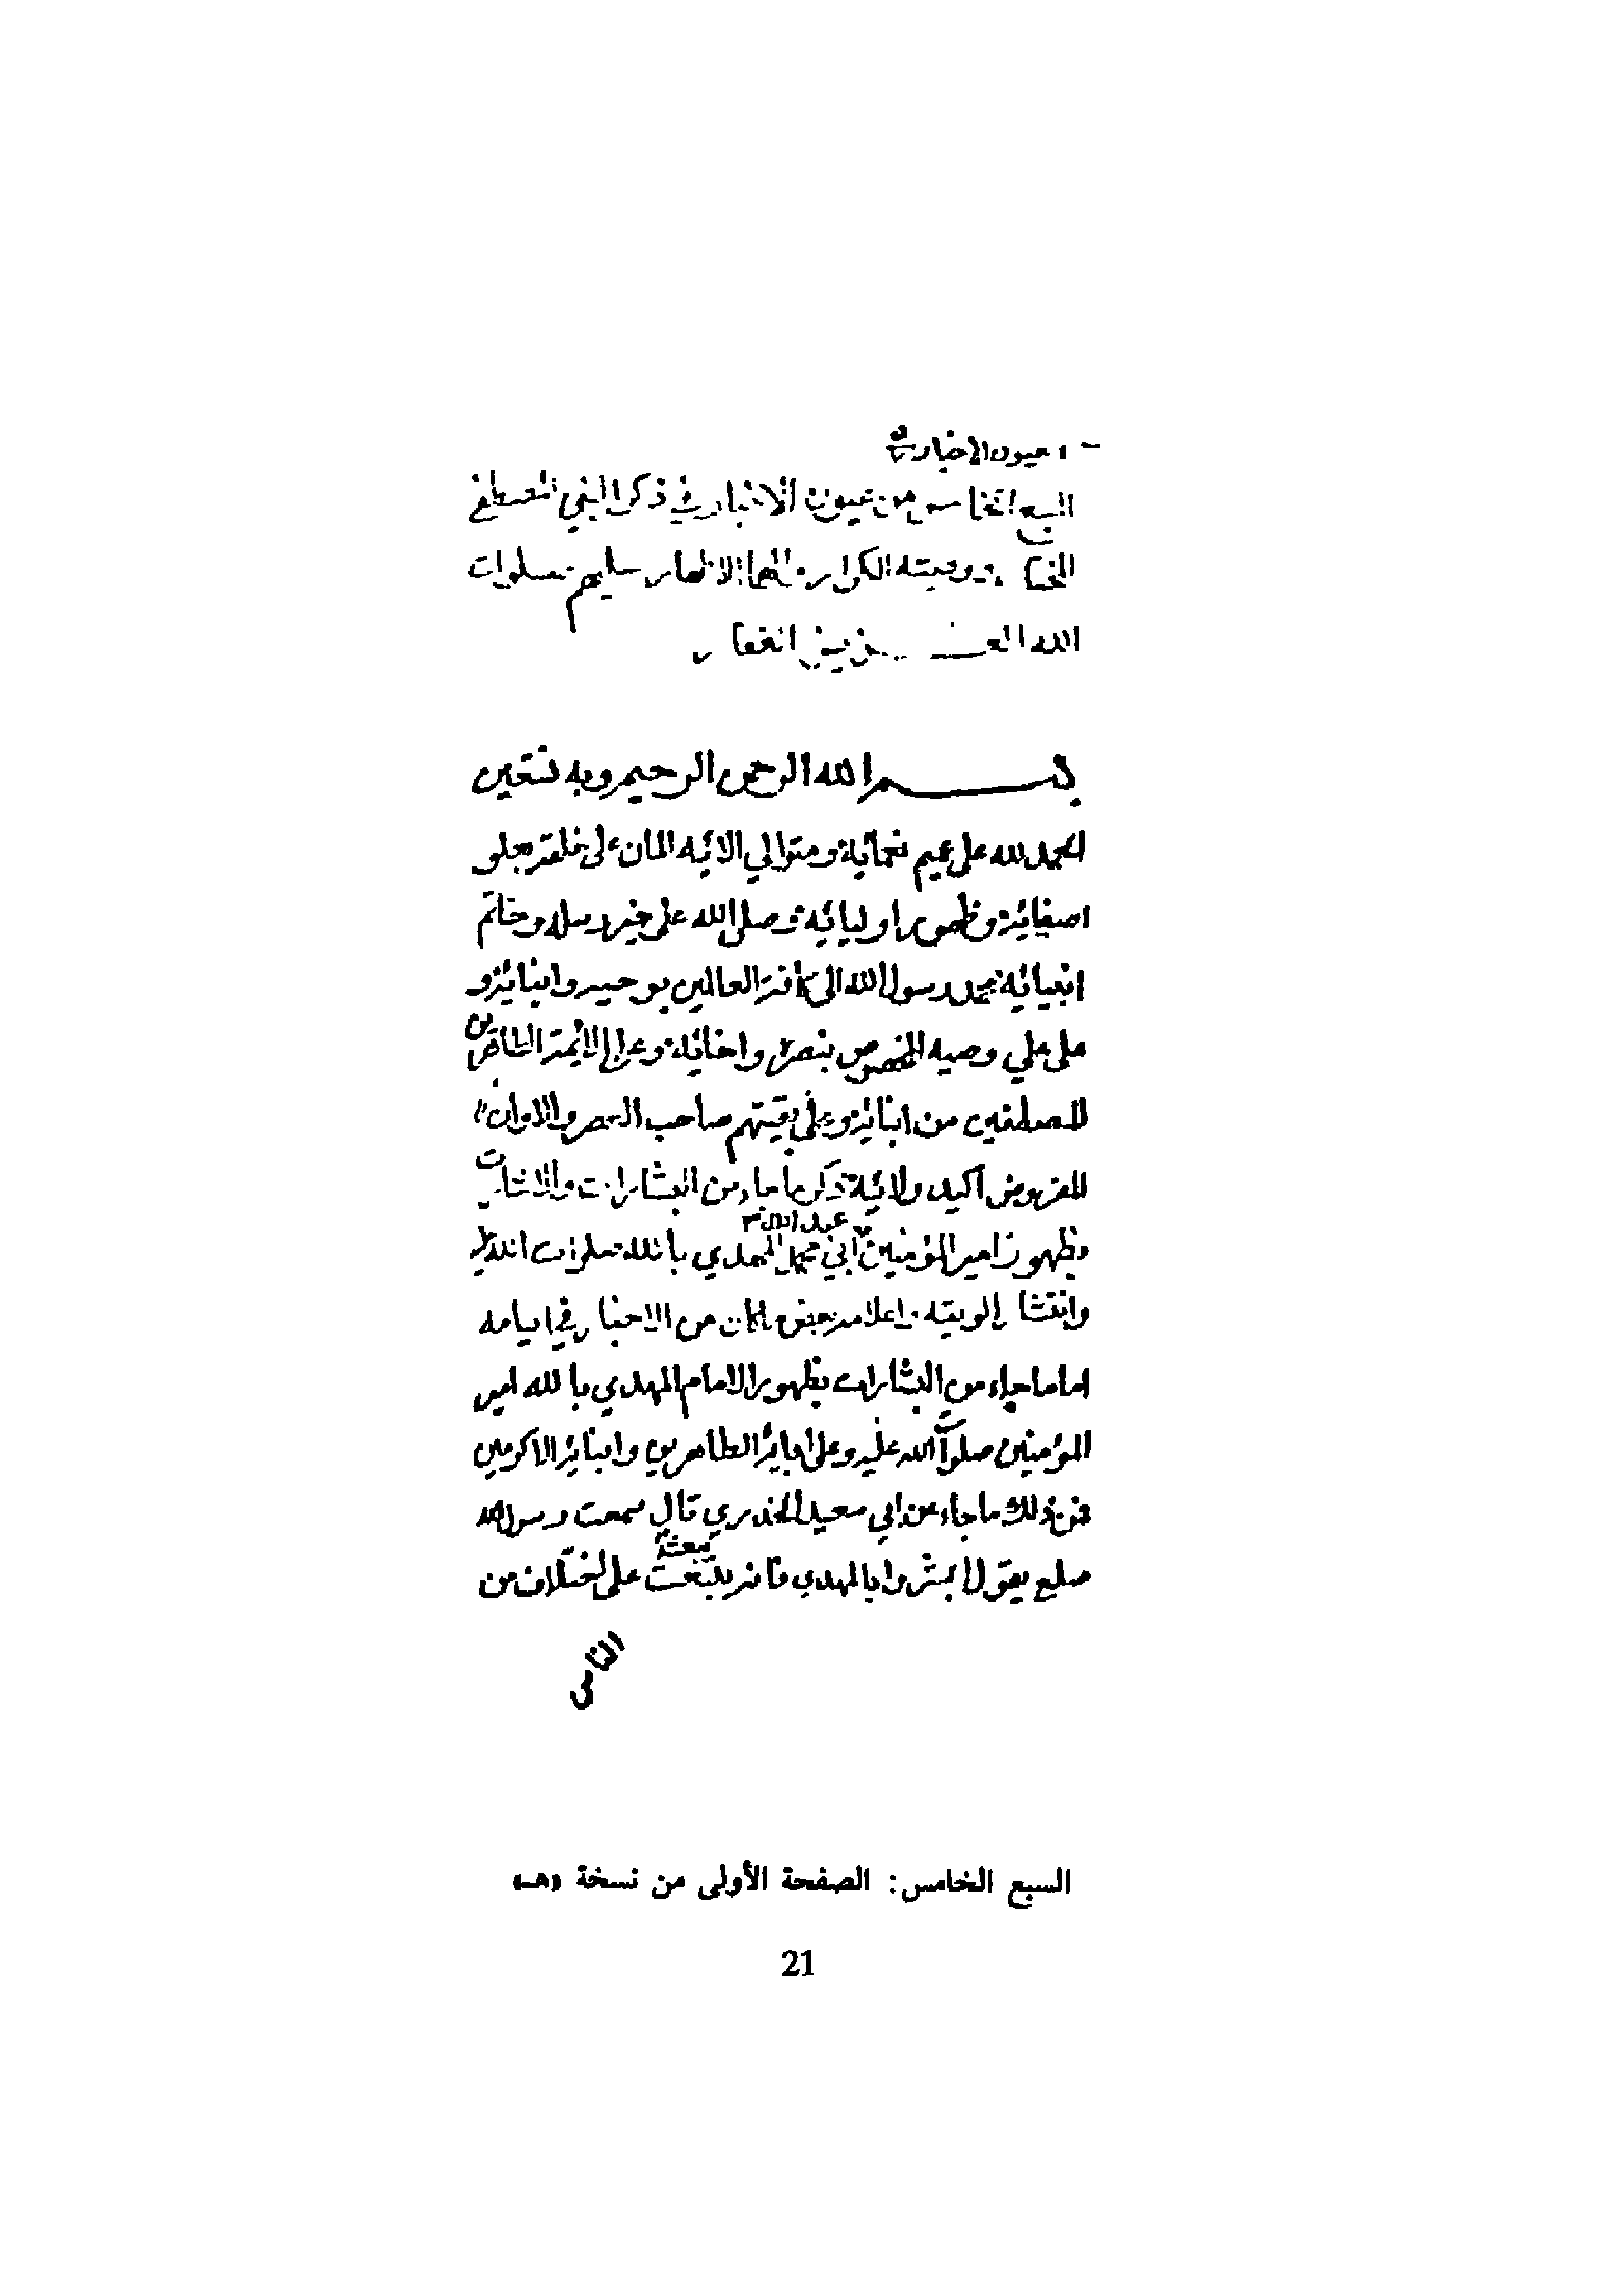 عيون الاخبار
السبع الخامس من عيون الاخبار في ذكر النبي المصطفى
المختار ووصيه الكرار الاطهار عليهم صلوات
الله العزيز الغفار
بسم الله الرحمن الرحيم وبه نستعين
الحمد لله على عميم نعمائه ومتوالي الائه المان على خلقه بعلو
اصفيائه وظهور اوليائه وصلى الله على خير رسله وخاتم
انبيائه محمد رسول الله الى كافة العالمين بوحيه وانبائه و
على علي وصيه المخصوص بنصره واخائه وعلى الائمة الطاهرين
المصطفين من ابنائه وعلى بقيتهم صاحب العصر والاوان
المفروض اكيد ولائه ذكر ما جاء من البشارات والاشارات
بظهور امير المؤمنين ابي محمد عبد الله المهدي بالله صلوات الله عليه
وانتشار الويته واعلامه وبعض ما كان من الاخبار في ايامه
اما ما جاء من البشارات بظهور الامام المهدي بالله امير
المؤمنين صلوات الله عليه وعلى ابائه الطاهرين وابنائه الاكرمين
فمن ذلك ما جاء عن ابي سعيد الخدري قال سمعت رسول الله
صلع يقول ابشروا بالمهدي فانه يبعث على اختلاف من
الناس
السبع الخامس: الصفحة الأولى من نسخة (هـ)
21